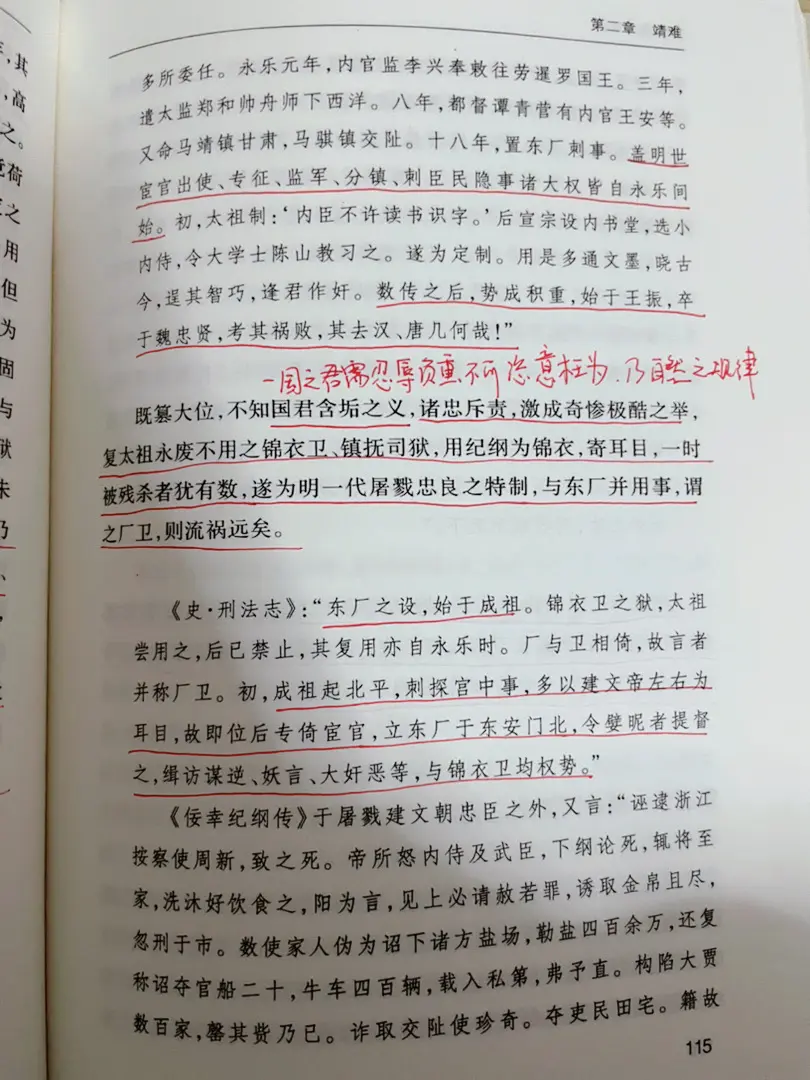 第二章 靖难
多所委任。永乐元年，内官监李兴奉敕往劳暹罗国王。三年，
遣太监郑和帅舟师下西洋。八年，都督谭青营有内官王安等。
又命马靖镇甘肃，马骐镇交阯。十八年，置东厂刺事。盖明世
宦官出使、专征、监军、分镇、刺臣民隐事诸大权皆自永乐间
始。初，太祖制：‘内臣不许读书识字。’后宣宗设内书堂，选小
内侍，令大学士陈山教习之。遂为定制。用是多通文墨，晓古
今，逞其智巧，逢君作奸。数传之后，势成积重，始于王振，卒
于魏忠贤，考其祸败，其去汉、唐几何哉！”
一国之君需忍辱负重不可恣意枉为，乃自然之规律
既篡大位，不知国君含垢之义，诸忠斥责，激成奇惨极酷之举，
复太祖永废不用之锦衣卫、镇抚司狱，用纪纲为锦衣，寄耳目，一时
被残杀者犹有数，遂为明一代屠戮忠良之特制，与东厂并用事，谓
之厂卫，则流祸远矣。
《史·刑法志》：“东厂之设，始于成祖。锦衣卫之狱，太祖
尝用之，后已禁止，其复用亦自永乐时。厂与卫相倚，故言者
并称厂卫。初，成祖起北平，刺探宫中事，多以建文帝左右为
耳目，故即位后专倚宦官，立东厂于东安门北，令嬖昵者提督
之，缉访谋逆、妖言、大奸恶等，与锦衣卫均权势。”
《佞幸纪纲传》于屠戮建文朝忠臣之外，又言：“诬逮浙江
按察使周新，致之死。帝所怒内侍及武臣，下纲论死，辄将至
家，洗沐好饮食之，阳为言，见上必请赦若罪，诱取金帛且尽，
忽刑于市。数使家人伪为诏下诸方盐场，勒盐四百余万，还复
称诏夺官船二十，牛车四百辆，载入私第，弗予直。构陷大贾
数百家，罄其赀乃已。诈取交阯使珍奇。夺吏民田宅。籍故
115
，其
，高
之。
荷
之
用
但
为
固
与
狱
朱
乃